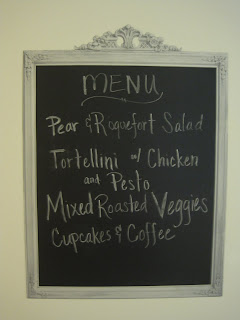 MENU
Pear & Roquefort Salad
Tortellini w/ Chicken
and Pesto
Mixed Roasted Veggies
Cupcakes & Coffee